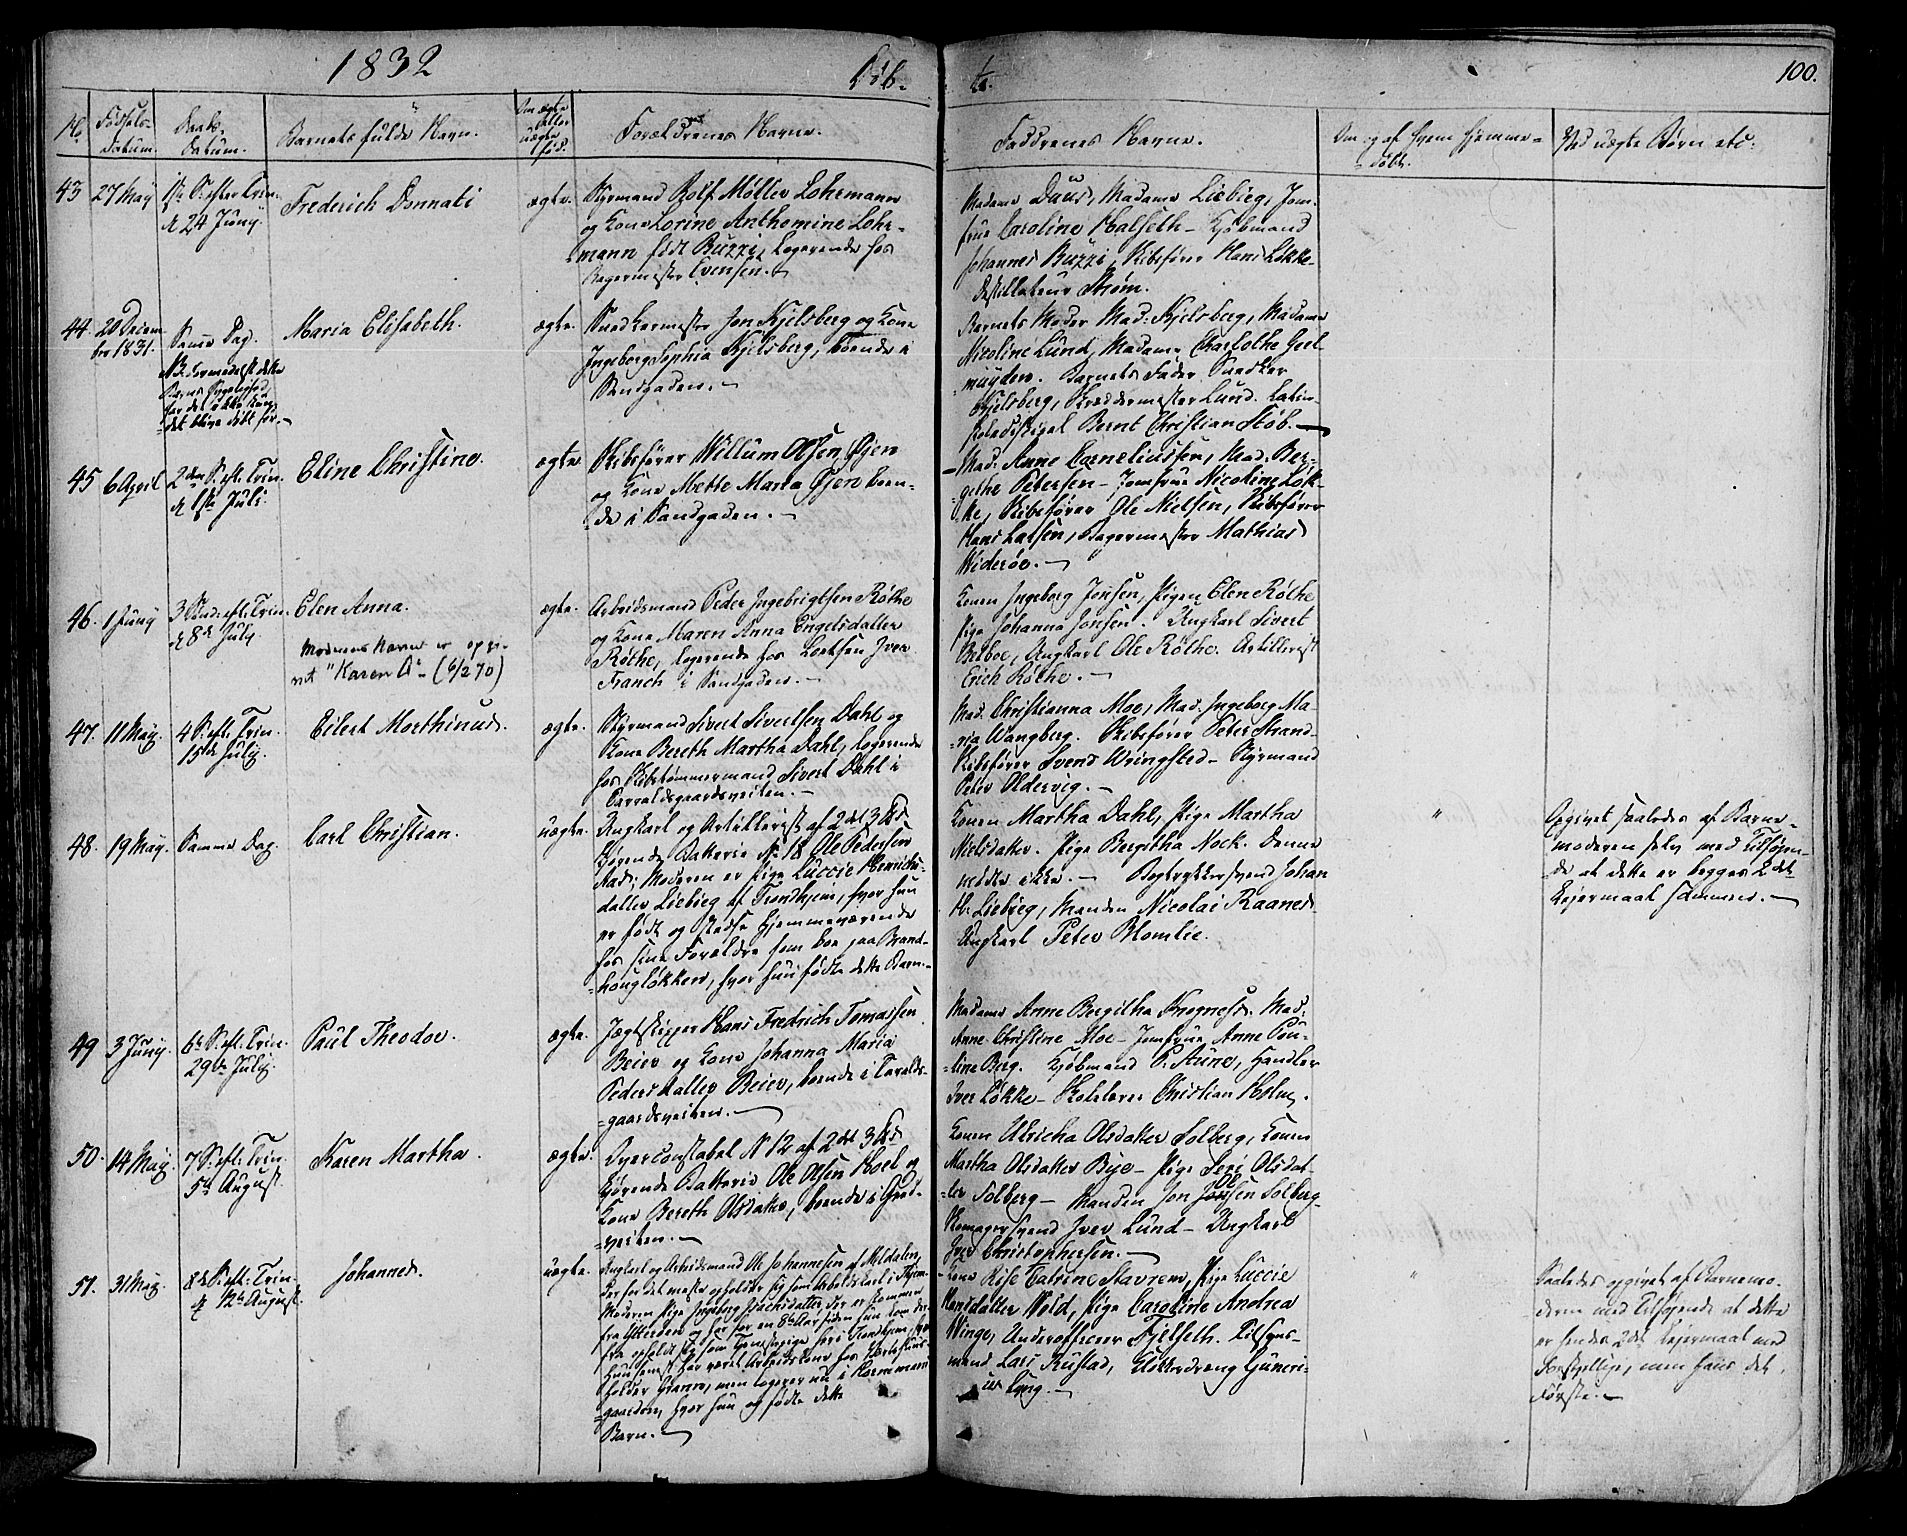 1832
Døb-
te.
100.
No
Fødsels-
Datum.
Daabs-
Datum.
Barnets fulde Navn.
Om ægte
eller
uægte
født.
Forældrenes Navne.
Faddrenes Navne.
Om og af hvem hjemme-
døbt.
Ved uægte Børn etc:
43
27 May
1ste S: efter Trin.
d 24 Juny.
Frederich Donnati
ægte.
Styrmand Rolf Møller Lohrmann
og Kone Lorine Anthomine Lohr-
mann født Buzzi, logerende hos
Bagermester Evensen.
Madame Daus, Madame Liebieg, Jom-
frue Caroline Halseth - Kjøbmand
Johannes Buzzi, Skibsfører Hans Løkke
Destillateur Strøm.
44.
20 Decem
ber 1831.
Samme Dag.
NB. Formedelst dette
Barns Svagelighed
har det ikke kun-
det blive døbt før.
Maria Elisabeth.
ægte.
Snedkermester Jon Kjelsberg og Kone
Ingeborg Sophia Kjelsberg, boende i
Sandgaden.
Barnets Moder Mad: Kjelsberg, Madame
Nicoline Lund, Madame Charlothe Geel
muyden. Barnets Fader Snedker
Kjelsberg, Skræddermester Lund. Latin-
skoledisipel Bernt Christian Støb.
45
6 April
2den S. eft: Trin.
d 1ste Juli.
Eline Christine.
ægte
Skibsfører Willum Olsen Øyen
og Kone Mette Marta Øyen boen-
de i Sandgaden.
Mad: Anne Corneliussen, Mad. Ber-
gethe Petersen - Jomfrue Nicoline Løk-
ke, Skibsfører Ole Nielsen, Skibsfører
Hans Larsen, Bagermester Mathias
Widerøe.
46.
1 Juny
3 Sønd. eft: Trin.
d 8de July
Elen Anna.
Moderens Navn er opgi-
vet "Karen A" - (6/270)
ægte.
Arbeidsmand Peder Ingebrigtsen Røthe
og Kone Maren Anna Engelsdatter
Røthe, logerende hos Lodsen Iver
Franch i Sandgaden.
Konen Ingeborg Jonsen, Pigen Elen Røthe
Pige Johanna Jonsen. Ungkarl Sivert
Betboe, Ungkarl Ole Røthe. Artillerist
Erich Røthe.
47.
11 May.
4 S. eft: Trin.
15de July.
Eilert Morthinus.
ægte.
Styrmand Sivert Sivertsen Dahl og
Kone Bereth Martha Dahl, logerende
hos Skibstømmermand Sivert Dahl i
Tarvaldsgaardsveiten.
Mad: Christianna Moe, Mad. Ingeborg Ma-
ria Wangberg. Skibsfører Peter Strand
Skibsfører Svend Wringsted - Styrmand
Peter Oldervig.
48.
19 May.
Samme Dag.
Carl Christian.
uægte.
Ungkarl og Artillerist af 2det 3 Pds
Kjørende Batterie No 18 Ole Pedersen
Aas; Moderen er Pige Luccie Henrichs-
datter Liebieg af Trondhjem, hvor hun
er født og stedse hjemmeværende
hos sine Forældre som boe paa Brand-
hougløkken, hvor hun fødte dette Barn.
Konen Martha Dahl, Pige Martha
Nielsdatter. Pige Bergitha Nock. Denne
mødte ikke. - Bogtrykkersvend Johan
H. Liebieg, Manden Nicolai Raanes.
Ungkarl Peter Blomlie.
"
Opgivet saaledes af Barne-
moderen selv med Tilføyen-
de at dette er begges 2det
Leiermaal sammen.
49
3 Juny.
6te S. eft: Trin.
29de July.
Paul Theodor.
ægte.
Jægtskipper Hans Fredrich Tomassen
Beier og Kone Johanna Maria
Pedersdatter Beier, boende i Tarvalds-
gaardsveiten.
Madame Anne Bergitha Krognes. Mad:
Anne Christine Moe - Jomfrue Anne Pou-
line Berg. Kjøbmand P. Aune, Handler
Iver Løkke - Skolelærer Christian Holm.
50.
14 May.
7 S. eft: Trin.
5te August.
Karen Martha.
ægte.
Overconstabel No 12 af 2det 3 Pds
kjørende Batterie Ole Olsen Hoel og
Kone Bereth Olsdatter, boende i Grod-
veiten.
Konen Ulricha Olsdatter Solberg, Konen
Martha Olsdatter Bye - Pige Seri Olsdat-
ter Solberg - Manden Jon Jonsen Solberg
Skomagersvend Iver Lund - Ungkarl
Iver Christophersen.
51.
31 May.
8de S. eft: Trin.
d 12te August.
Johannes.
uægte.
Ungkarl og Arbeidsmand Ole Johannesen af Meldalen,
der for det meste opholder sig som Arbeidskarl i Tronhjem.
Moderen Pige Ingeborg Isachsdatter, der er kommen
fra Ytterøen og har for en 8te Aar siden hun kom der-
fra opholdt sig som Tjenestepige her i Trondhjem, hvor
hun senest har været Arbeidskone hos Værtshuus-
holder Hiermo, men logerer nu i Kammemans
gaarden, hvor hun og fødte dette
Barn.
Kone Kise Catrine Stavrem, Pige Luccie
Hansdatter Wold, Pige Caroline Andrea
Winge, Underofficeer Fjelseth. Tilsyns-
mand Lars Rustad, Gaardsdreng Guneri-
us Lyng.
"
Saaledes opgivet af Barnemo-
deren med Tilføyende at dette
er hendes 2det Leiermaal med
Forskjellige, men hans det
Første.